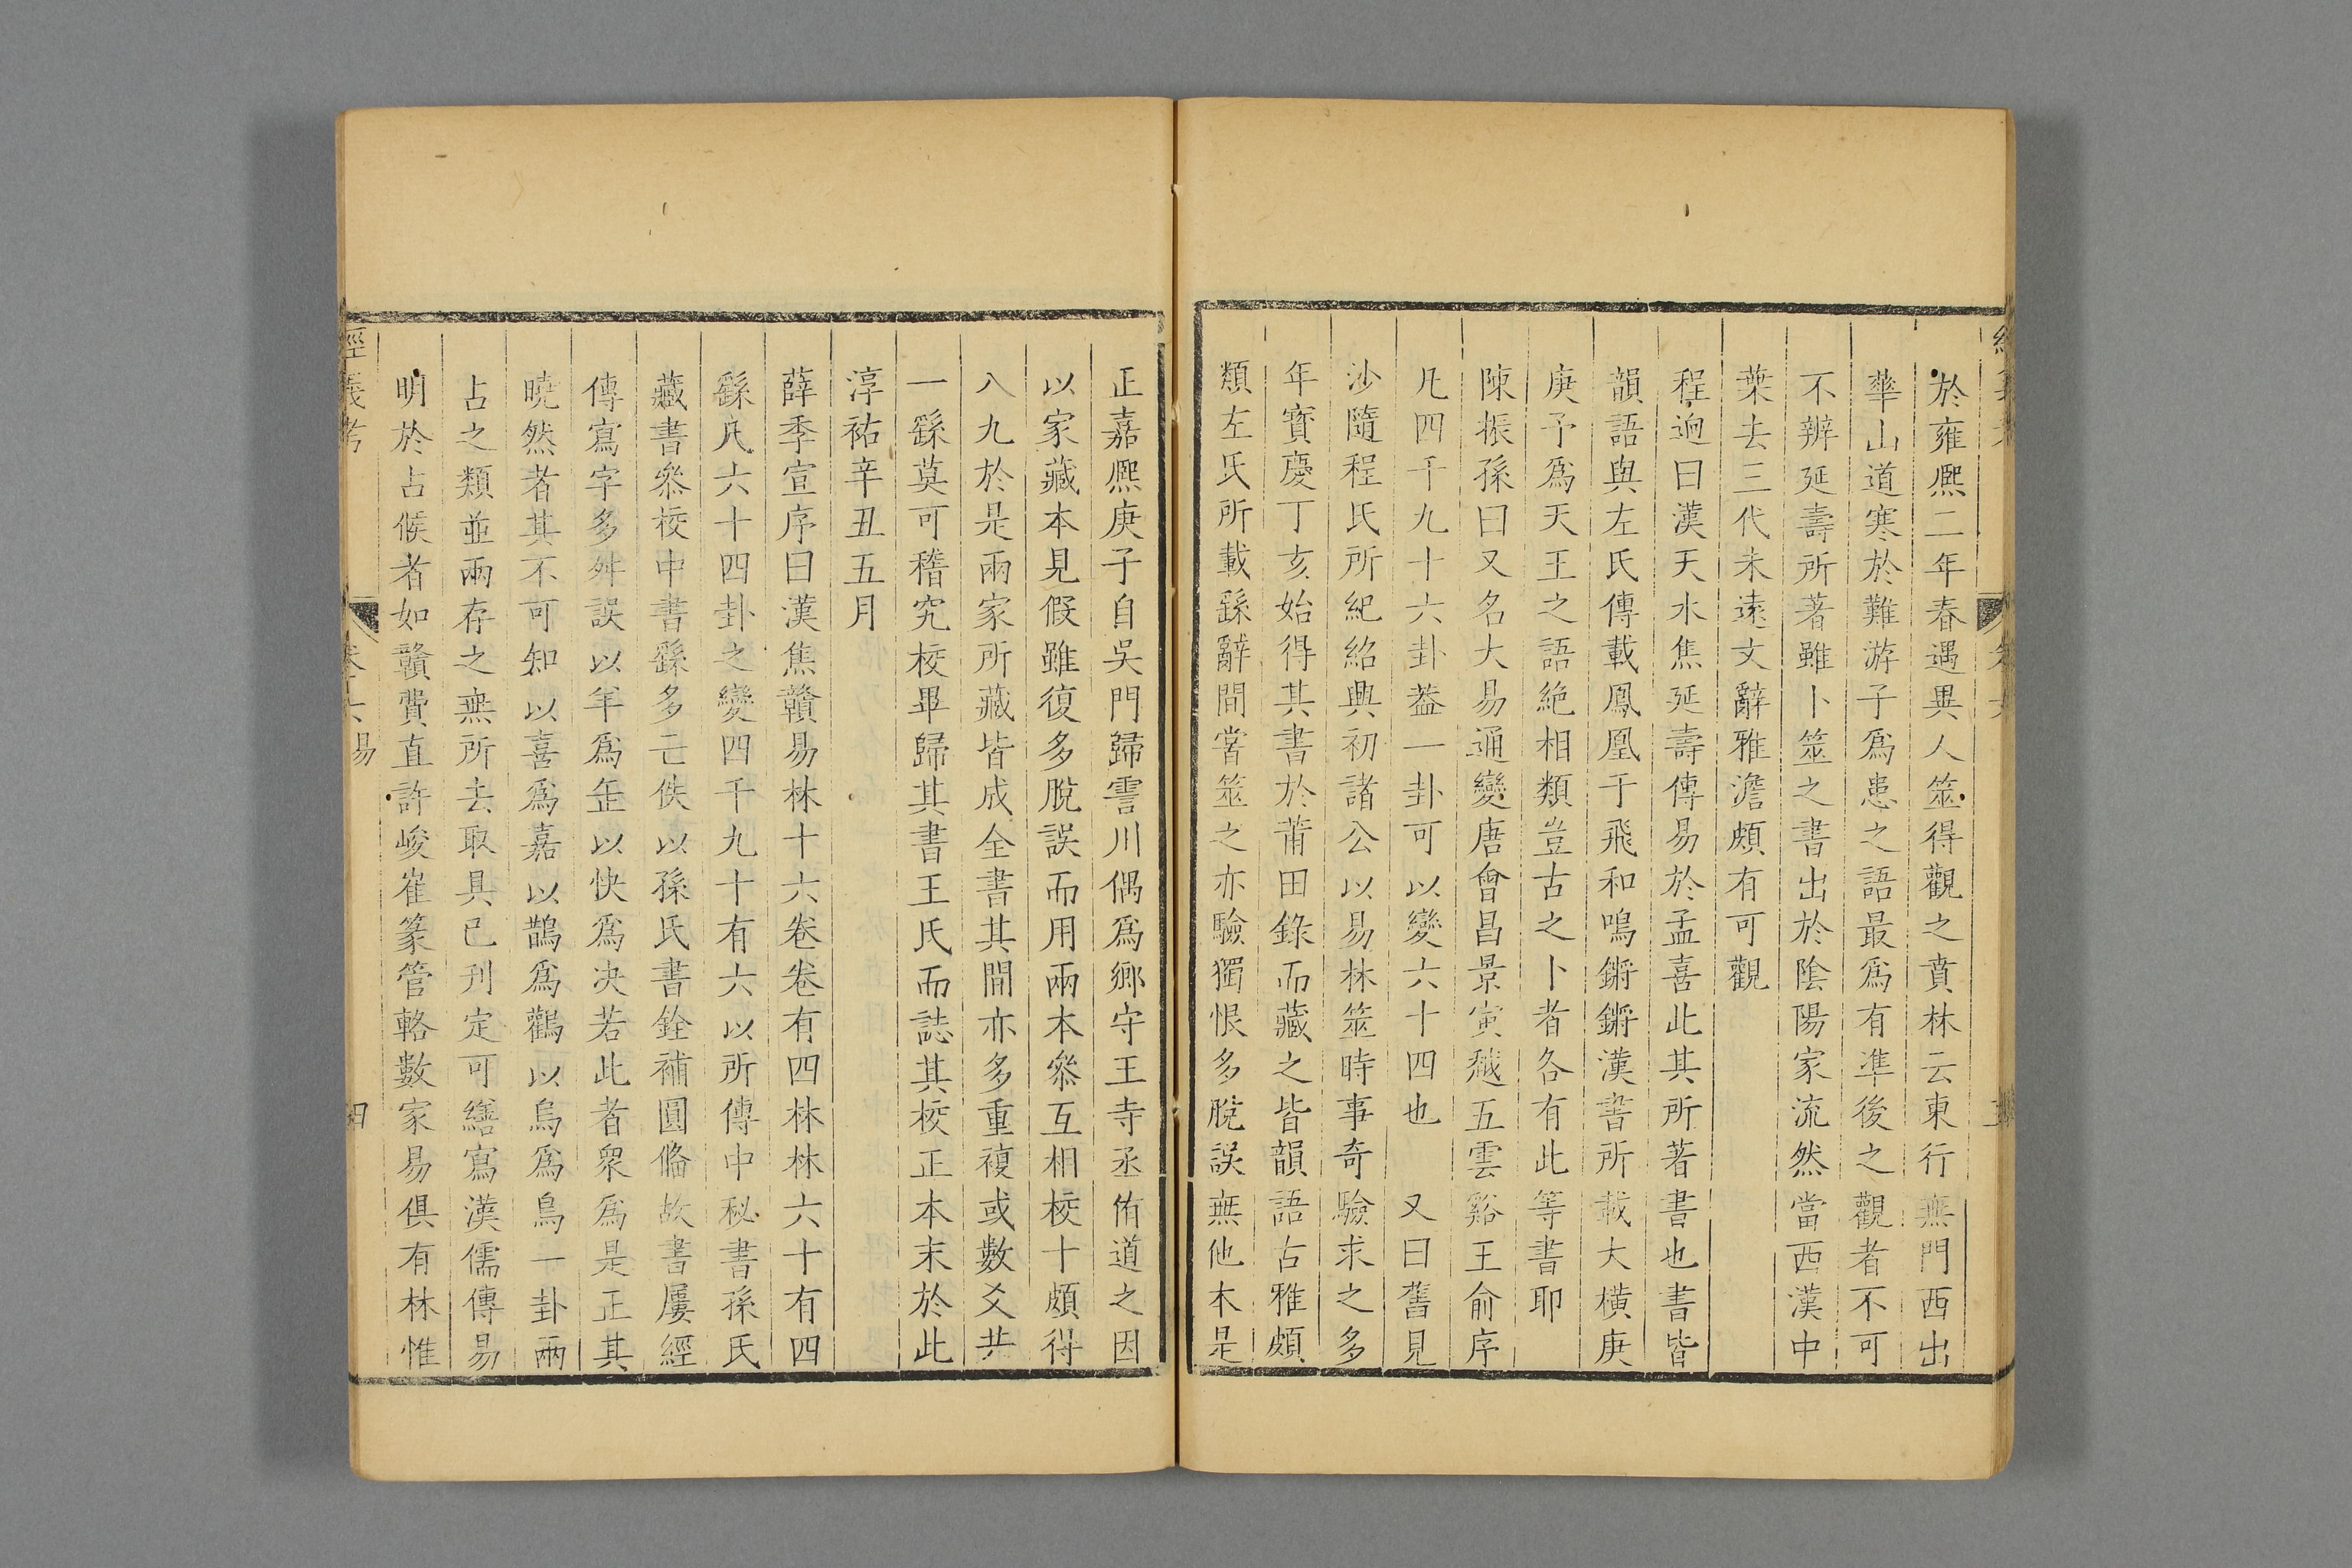 於雍熈二年春遇異人筮得觀之賁林云東行無門西出
華山道寒於難游子爲患之語最爲有凖後之觀者不可
不辨延壽所著雖卜筮之書出於陰陽家流然當西漢中
葉去三代未遠文辭雅澹頗有可觀
程迥曰漢天水焦延壽傳易於孟喜此其所著書也書皆
韻語與左氏傳載鳳凰于飛和鳴鏘鏘漢書所載大横庚
庚予爲天王之語絶相類豈古之卜者各有此等書耶
陳振孫曰又名大易通變唐會昌景寅越五雲谿王俞序
凡四千九十六卦葢一卦可以變六十四也　又曰舊見
沙隨程氏所紀紹興初諸公以易林筮時事奇驗求之多
年寶慶丁亥始得其書於莆田錄而藏之皆韻語古雅頗
類左氏所載繇辭間嘗筮之亦驗獨恨多脫誤無他本是
正嘉熈庚子自吳門歸霅川偶爲鄉守王寺丞侑道之因
以家藏本見假雖復多脫誤而用兩本叅互相校十頗得
八九於是兩家所藏皆成全書其間亦多重複或數爻共
一繇莫可稽究校畢歸其書王氏而誌其校正本末於此
淳祐辛丑五月
薛季宣序曰漢焦贛易林十六卷卷有四林林六十有四
繇凡六十四卦之變四千九十有六以所傳中秘書孫氏
藏書叅校中書繇多亡佚以孫氏書銓補圓俻故書屢經
傳寫字多舛誤以羊爲缶以快爲决若此者衆爲是正其
曉然者其不可知以喜爲嘉以鵲爲鸛以烏爲鳥一卦兩
占之類並兩存之無所去取具已刋定可繕寫漢儒傳易
明於占候者如贛費直許峻崔篆管輅數家易俱有林惟
經義考
卷六　易
四